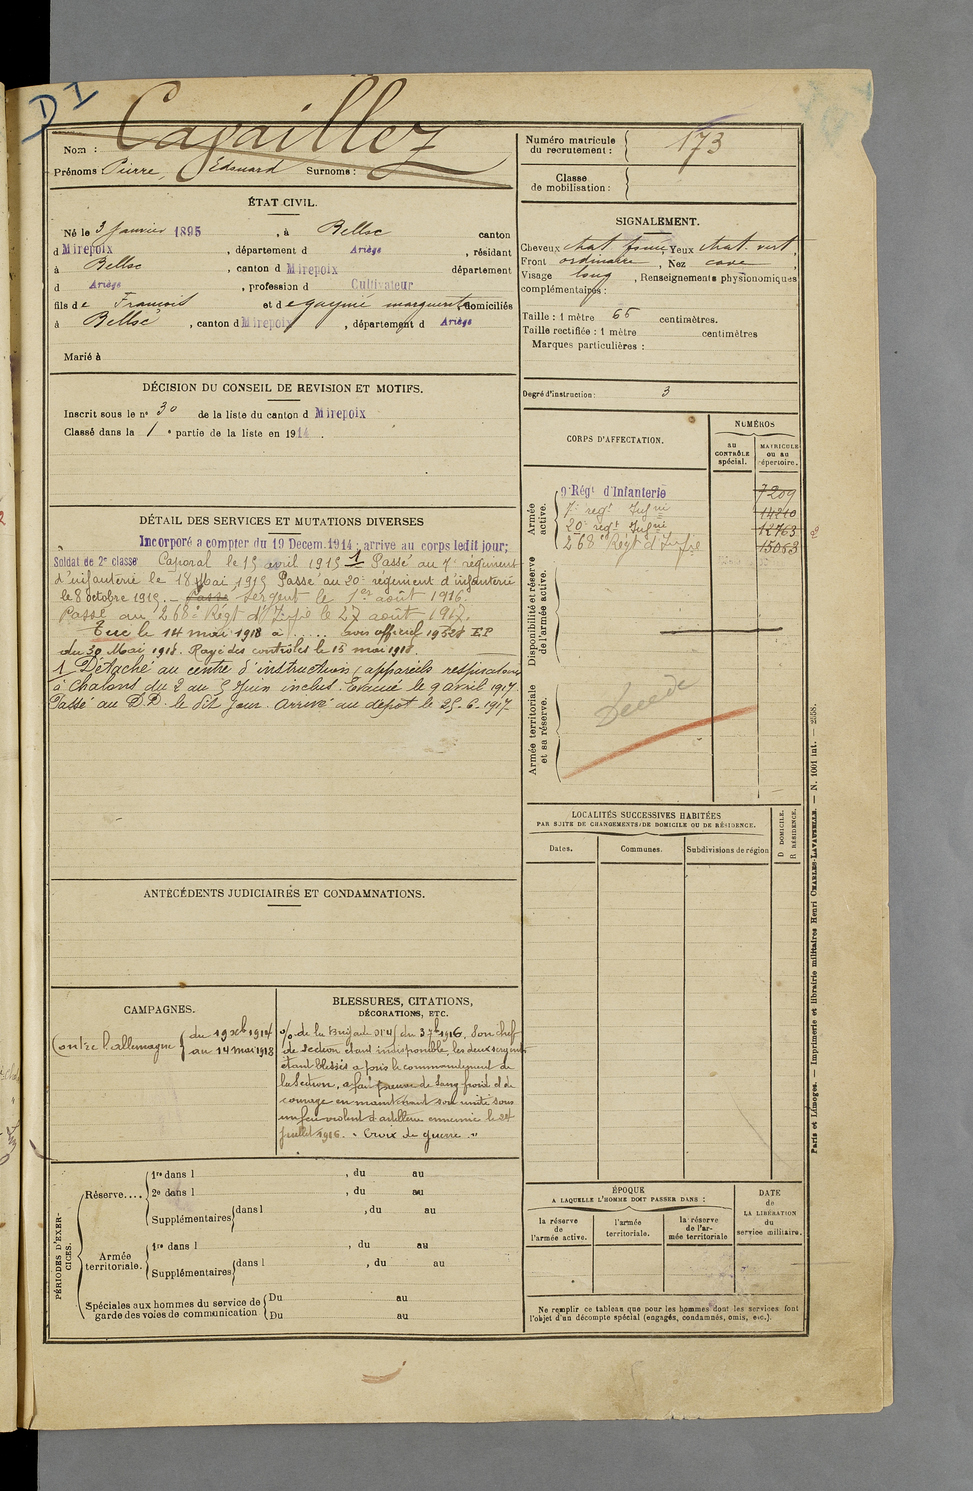 D I
Nom : Cavaillez
Prénoms Pierre, Edouard Surnoms :
Numéro matricule du recrutement : 173
Classe de mobilisation :
ÉTAT CIVIL.
Né le 3 Janvier 1895, à Belloc canton
d Mirepoix, département d Ariège, résidant
à Belloc, canton d Mirepoix département
d Ariège, profession d Cultivateur
fils de François et de gagnié marguerite, domiciliés
à Belloc, canton d Mirepoix, département d Ariège
Marié à
SIGNALEMENT.
Cheveux chat. foncé, Yeux chat. vert,
Front ordinaire, Nez cave,
Visage long, Renseignements physionomiques
complémentaires :
Taille : 1 mètre 65 centimètres.
Taille rectifiée : 1 mètre centimètres
Marques particulières :
Degré d'instruction : 3
DÉCISION DU CONSEIL DE REVISION ET MOTIFS.
Inscrit sous le n° 30 de la liste du canton d Mirepoix
Classé dans la 1e partie de la liste en 1914.
DÉTAIL DES SERVICES ET MUTATIONS DIVERSES
Incorporé a compter du 19 Decem. 1914 ; arrive au corps ledit jour;
Soldat de 2e classe Caporal le 15 avril 1915 1 Passé au 7e régiment
d'infanterie le 18 Mai 1915 Passé au 20e régiment d'infanterie
le 8 octobre 1915. — Passé Sergent le 1er août 1916.
Passé au 268e Régt d'Infie le 27 août 1917.
Tué le 14 mai 1918 à ..... avis officiel 19528 EP
du 30 Mai 1918. Rayé des contrôles le 15 mai 1918.
1 Détaché au centre d'instruction (appareils respiratoires
à Chalons du 2 au 5 Juin inclus. Evacué le 9 avril 1917.
Passé au D.D. le dit jour. Arrivé au dépot le 25-6-1917
CORPS D'AFFECTATION.
NUMÉROS
au CONTRÔLE spécial.
MATRICULE ou au répertoire.
Armée active.
9e Régt d'Infanterie 7209
7e régt Infrie 14210
20e régt Infrie 12763
268e Régt d'Infie 15063
Disponibilité et réserve de l'armée active.
Armée territoriale et sa réserve.
Décédé
LOCALITÉS SUCCESSIVES HABITÉES
PAR SUITE DE CHANGEMENTS DE DOMICILE OU DE RÉSIDENCE.
Dates. Communes. Subdivisions de région
D DOMICILE. R RÉSIDENCE.
ANTÉCÉDENTS JUDICIAIRES ET CONDAMNATIONS.
CAMPAGNES.
Contre l'allemagne
du 19 Xbre 1914
au 14 mai 1918
BLESSURES, CITATIONS,
DÉCORATIONS, ETC.
de la Brigade du 3 7bre 1916, Son chef
de section étant indisponible, les deux sergents
étant blessés a pris le commandement de
la Section, a fait preuve de Sang froid et de
courage en maintenant son unité sous
un feu violent d'artillerie ennemie le 24
juillet 1916. - Croix de guerre -
PÉRIODES D'EXERCICES.
Réserve....
1re dans l , du au
2e dans l , du au
Supplémentaires dans l , du au
Armée territoriale.
1re dans l , du au
Supplémentaires dans l , du au
Spéciales aux hommes du service de garde des voies de communication
Du au
Du au
ÉPOQUE
A LAQUELLE L'HOMME DOIT PASSER DANS :
la réserve de l'armée active.
l'armée territoriale.
la réserve de l'armée territoriale
DATE de LA LIBÉRATION du service militaire.
Ne remplir ce tableau que pour les hommes dont les services font
l'objet d'un décompte spécial (engagés, condamnés, omis, etc.).
Paris et Limoges. — Imprimerie et librairie militaires Henri CHARLES-LAVAUZELLE. — N. 1001 int. — 2558.